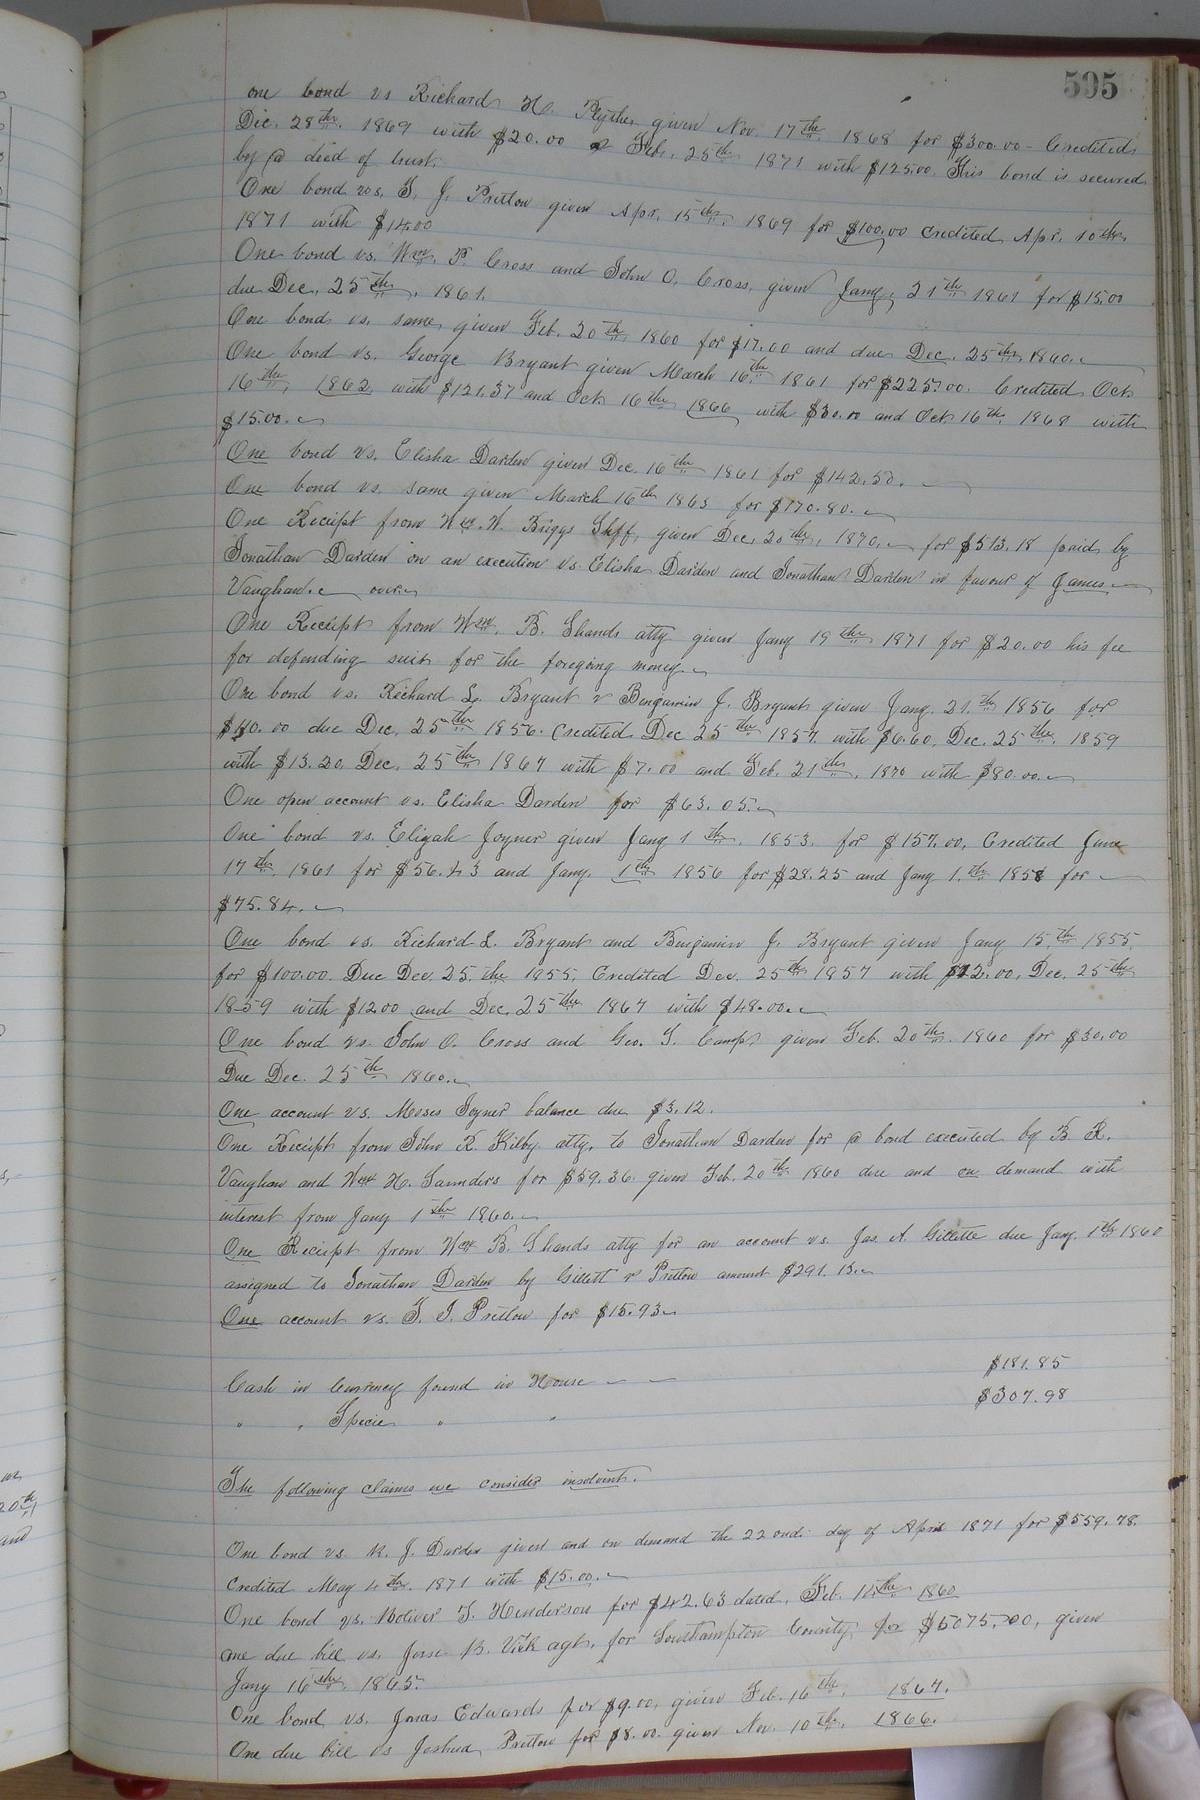 595
one bond vs Richard H. Blythe given Nov. 17th 1868 for $300.00 - Credited
Dec. 28th. 1869 with $20.00 & Feb. 25th 1871 with $125.00. This bond is secured
by a deed of trust.
One bond vs. T. J. Pretlow given Apr. 15th, 1869 for $100.00 credited Apr. 10th,
1871 with $14.00
One bond vs. Wm. P. Cross and John O. Cross, given Jany, 21th 1861 for $15.00
due Dec. 25th, 1861.
One bond vs. same, given Feb. 20th 1860 for $17.00 and due Dec. 25th, 1860.
One bond vs. George Bryant given March 16th 1861 for $225.00. Credited Oct.
16th, 1862, with $121.37 and Oct. 16th 1866, with $30.00 and Oct. 16th, 1868 with
$15.00.
One bond vs. Elisha Darden given Dec. 16th 1861 for $142.50.
One bond vs. same given March 16th 1863 for $170.80.
One Receipt from Wm. W. Briggs Shff, given Dec. 20th, 1870, for $513.18 paid by
Jonathan Darden on an execution vs. Elisha Darden and Jonathan Darden in favour of James
Vaughan. over.
One Receipt from Wm. B. Shands atty given Jany 19th 1871 for $20.00 his fee
for defending suit for the foregoing money.
One bond vs. Richard L. Bryant & Benjamin J. Bryant given Jany. 21.th 1856 for
$110.00 due Dec. 25th 1856. Credited Dec 25th 1857. with $6.60, Dec. 25th, 1859
with $13.20, Dec. 25th 1867 with $7.00 and Feb. 21th, 1870 with $80.00.
One open account vs. Elisha Darden for $63.05.
One bond vs. Elijah Joyner given Jany 1th, 1853. for $157.00, Credited June
17th, 1861 for $56.43 and Jany. 1th 1856 for $28.25 and Jany 1.th 1858 for
$75.84.
One bond vs. Richard L. Bryant and Benjamin J. Bryant given Jany 15th 1855.
for $100.00. Due Dec. 25.th 1855. Credited Dec. 25th 1857 with $12.00, Dec. 25th
1859 with $12.00 and Dec. 25th 1867 with $48.00.
One bond vs. John O. Cross and Geo. T. Camp given Feb. 20th. 1860 for $30.00
Due Dec. 25th 1860.
One account vs. Moses Joyner balance due $3.12.
One Receipt from John R. Kilby atty, to Jonathan Darden for a bond executed by B. R.
Vaughan and Wm H. Saunders for $59.36 given Feb. 20th 1860 due and on demand with
interest from Jany 1st 1860.
One Receipt from Wm B. Shands atty for an account vs. Jas. A. Gillette due Jany. 1th 1860
assigned to Jonathan Darden by Gillett & Pretlow amount $291.13.
One account vs. T. J. Pretlow for $15.93.
Cash in Currency found in House $181.85
" " Specie " " $307.98
The following claims we consider insolvent.
One bond vs. J. Darden given and on demand the 22ond. day of April 1871 for $559.78.
Credited May 4th. 1871 with $15.00.
One bond vs. Boliver T. Henderson for $42.63 dated, Feb. 14th 1860
one due bill vs. Jesse B. Vick agt. for Southampton County, for $5075.00, given
Jany 16th, 1865.
One bond vs. Jonas Edwards for $9.00, given Feb. 16th, 1867.
One due bill vs Joshua Pretlow for $8.00. given Nov. 10th, 1866.